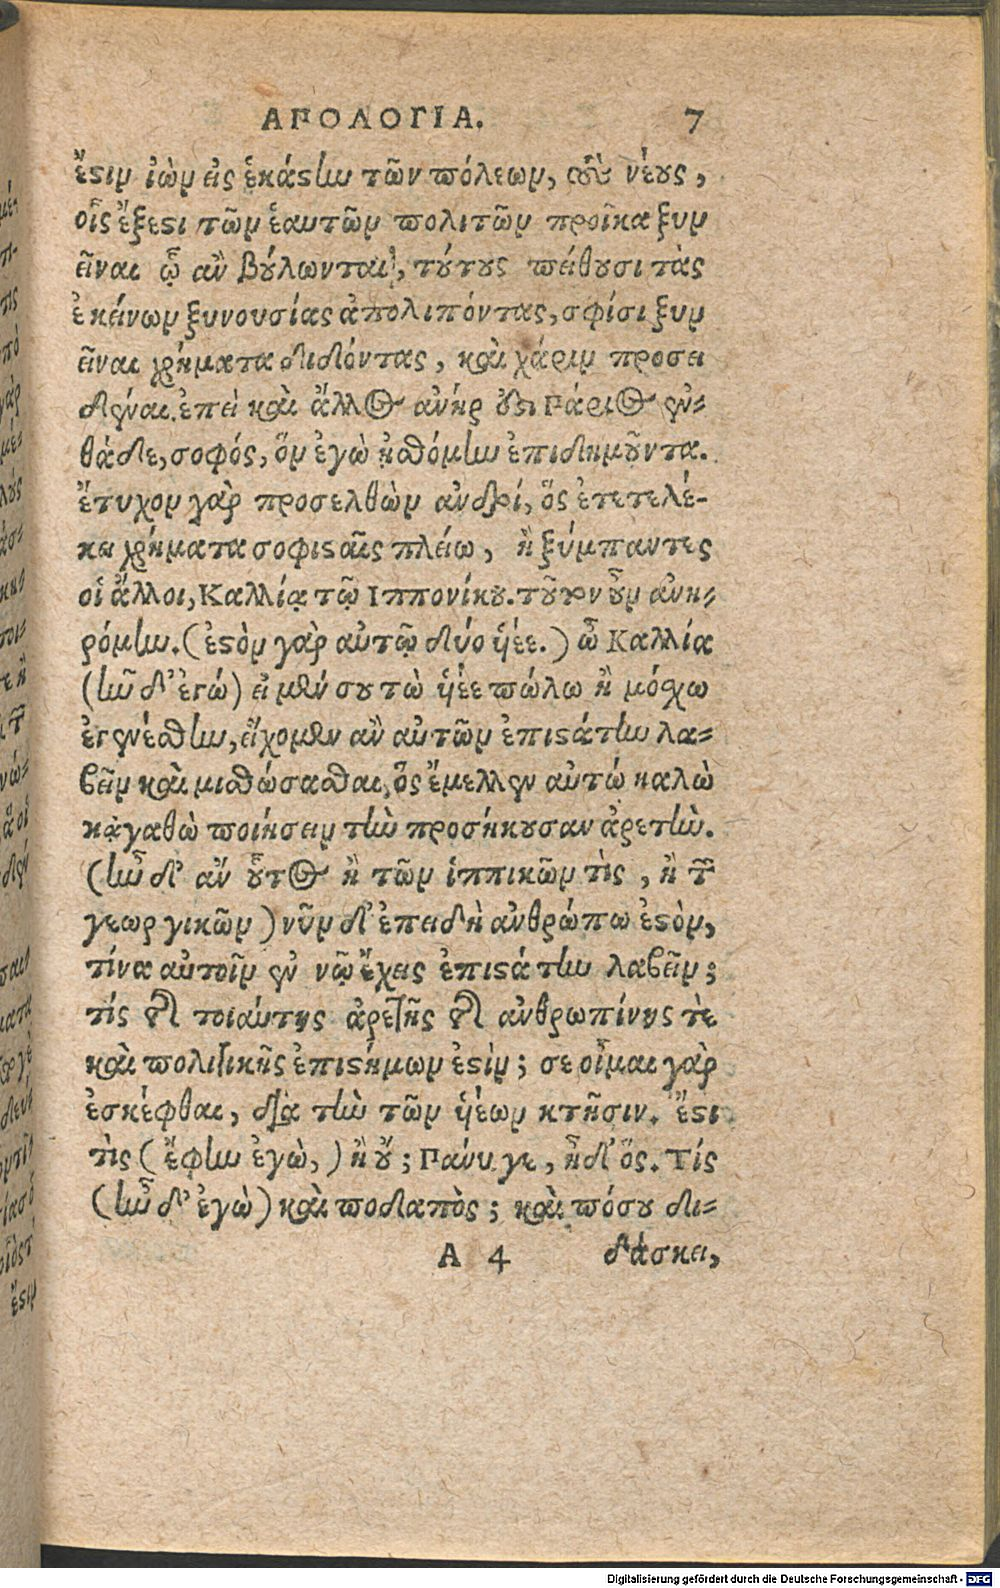 ΑΠΟΛΟΓΙΑ. 7
ἔστιν ἰὼν εἰς ἑκάστην τῶν πόλεων, τοὺς νέους,
οἷς ἔξεστι τῶν ἑαυτῶν πολιτῶν προῖκα ξυν
εῖναι ᾧ ἂν βούλωνται, τούτους πείθουσι τὰς
ἐκείνων ξυνουσίας ἀπολιπόντας, σφίσι ξυν
εῖναι χρήματα διδόντας, καὶ χάριν προσει
δέναι. ἐπεὶ καὶ ἄλλος ἀνήρ ὅδι Πάριος ἐν-
θάδε, σοφός, ὃν ἐγὼ ᾐσθόμην ἐπιδημοῦντα.
ἔτυχον γὰρ προσελθὼν ἀνδρί, ὃς ἐτετελέ-
κει χρήματα σοφισταῖς πλείω, ἢ ξύμπαντες
οἱ ἄλλοι, Καλλίᾳ τῷ Ιππονίκου. τοῦτον οὖν ἀνη-
ρόμην. (ἐστὸν γὰρ αὐτῷ δύο ὑέε.) ὦ Καλλία
(ἦν δ' ἐγώ) εἰ μέν σου τὼ ὑέε πώλω ἢ μόσχω
ἐγενέσθην, εἴχομεν ἂν αὐτῶν ἐπιστάτην λα-
βεῖν καὶ μισθώσασθαι, ὃς ἔμελλεν αὐτώ καλὼ
κἀγαθὼ ποιήσειν τὴν προσήκουσαν ἀρετὴν.
(ἦν δ' ἂν οὗτος ἢ τῶν ἱππικῶν τὶς, ἢ τῶν
γεωργικῶν) νῦν δ' ἐπειδὴ ἀνθρώπω ἐστὸν,
τίνα αὐτοῖν ἐν νῷ ἔχεις ἐπιστάτην λαβεῖν;
τίς τῆς τοιαύτης ἀρετῆς τῆς ἀνθρωπίνης τὲ
καὶ πολιτικῆς ἐπιστήμων ἐστὶν; σε οἶμαι γὰρ
ἐσκέφθαι, διὰ τὴν τῶν ὑέων κτῆσιν. ἔστι
τὶς (ἔφην ἐγὼ,) ἢ οὔ; Πάνυ γε, ἦ δ' ὅς. Τίς
(ἦν δ' ἐγὼ) καὶ ποδαπὸς; καὶ πόσου δι-
Α 4 δάσκει,
Digitalisierung gefördert durch die Deutsche Forschungsgemeinschaft - DFG